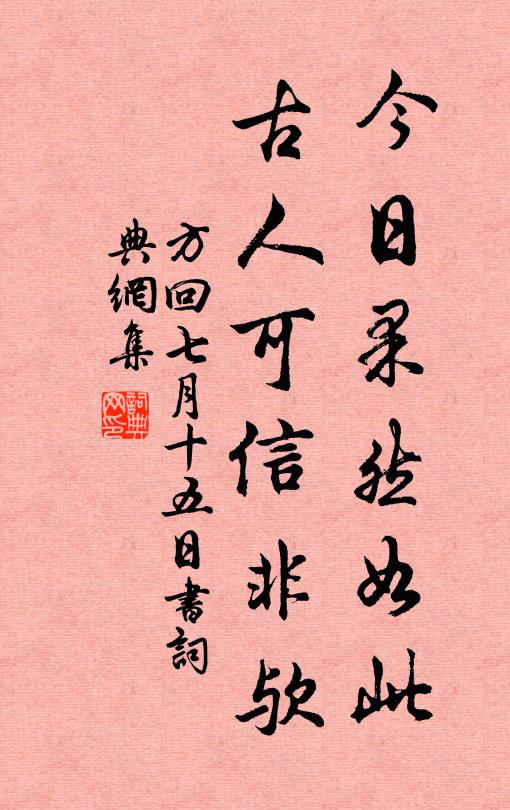 今日果然如此
古人可信非欤
方回七月十五日書詞
典網集
詞典网印